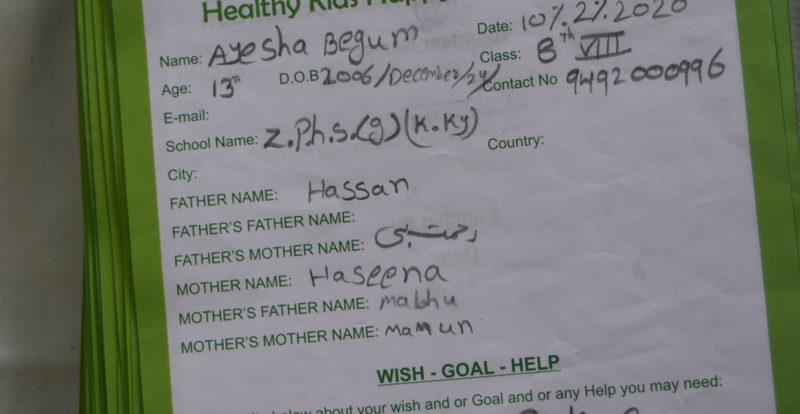 Healthy Kids Happy
Date: 10%.2%.2020
Name: Ayesha Begum
Class: 8th VIII
Age: 13th D.O.B 2006/December/24/ Contact No 9492000996
E-mail:
School Name: Z.P.h.s.(g)(K.Ky) Country:
City:
FATHER NAME: Hassan
FATHER'S FATHER NAME:
FATHER'S MOTHER NAME: رحمت بی
MOTHER NAME: Haseena
MOTHER'S FATHER NAME: mabhu
MOTHER'S MOTHER NAME: mamun
WISH - GOAL - HELP
below about your wish and or Goal and or any Help you may need: